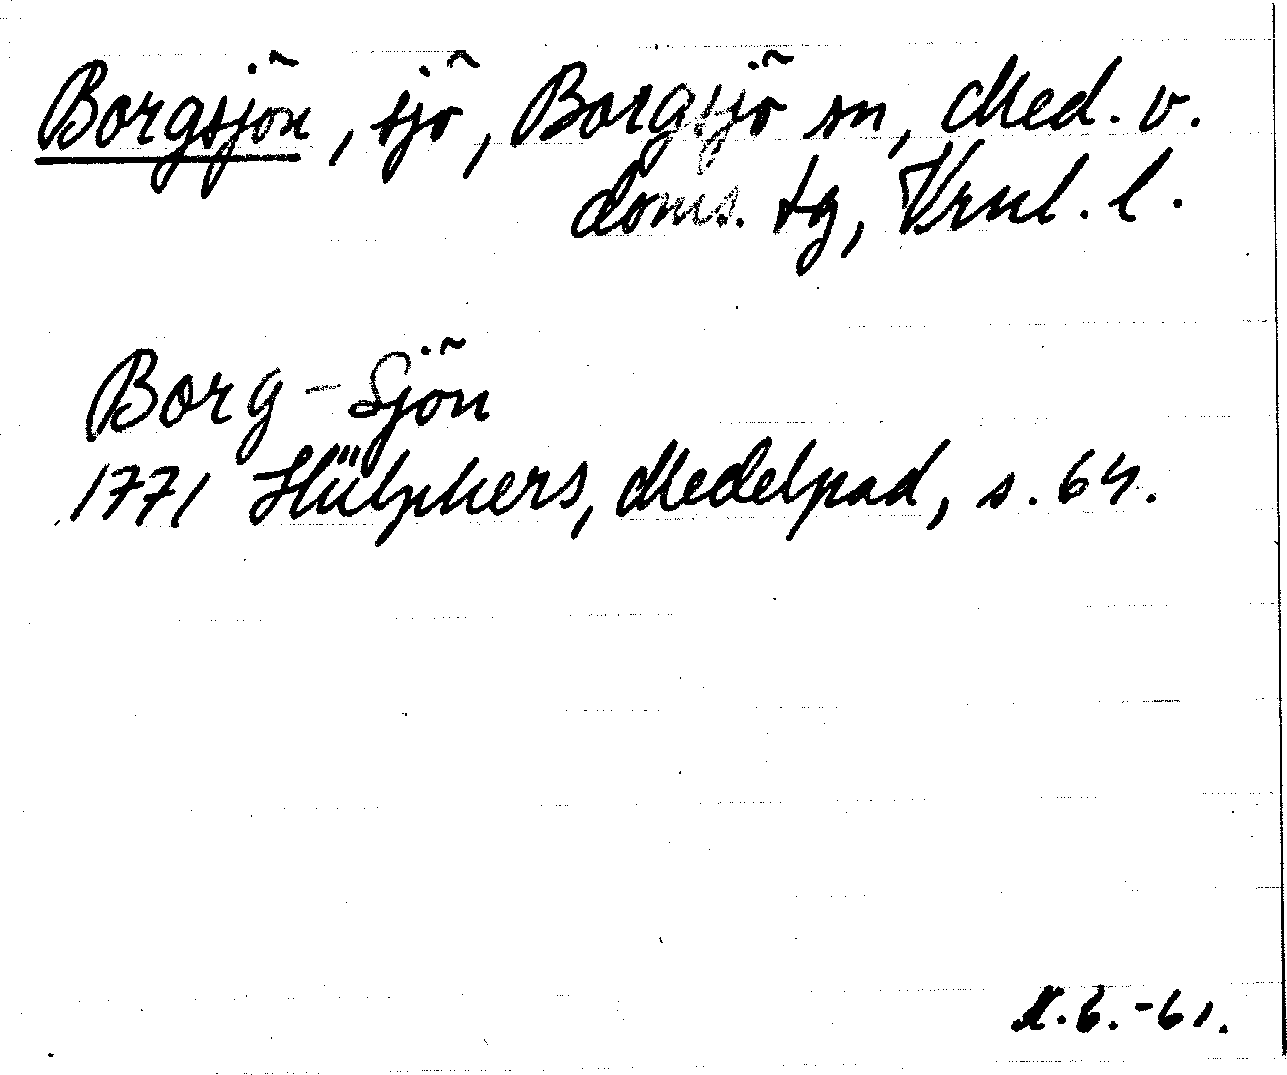 Borgsjön, sjö, Borgsjö sn, Med. v.
doms. tg, Vrnl. l.
Borg-Sjön
1771 Hülphers, Medelpad, s. 64.
-61.